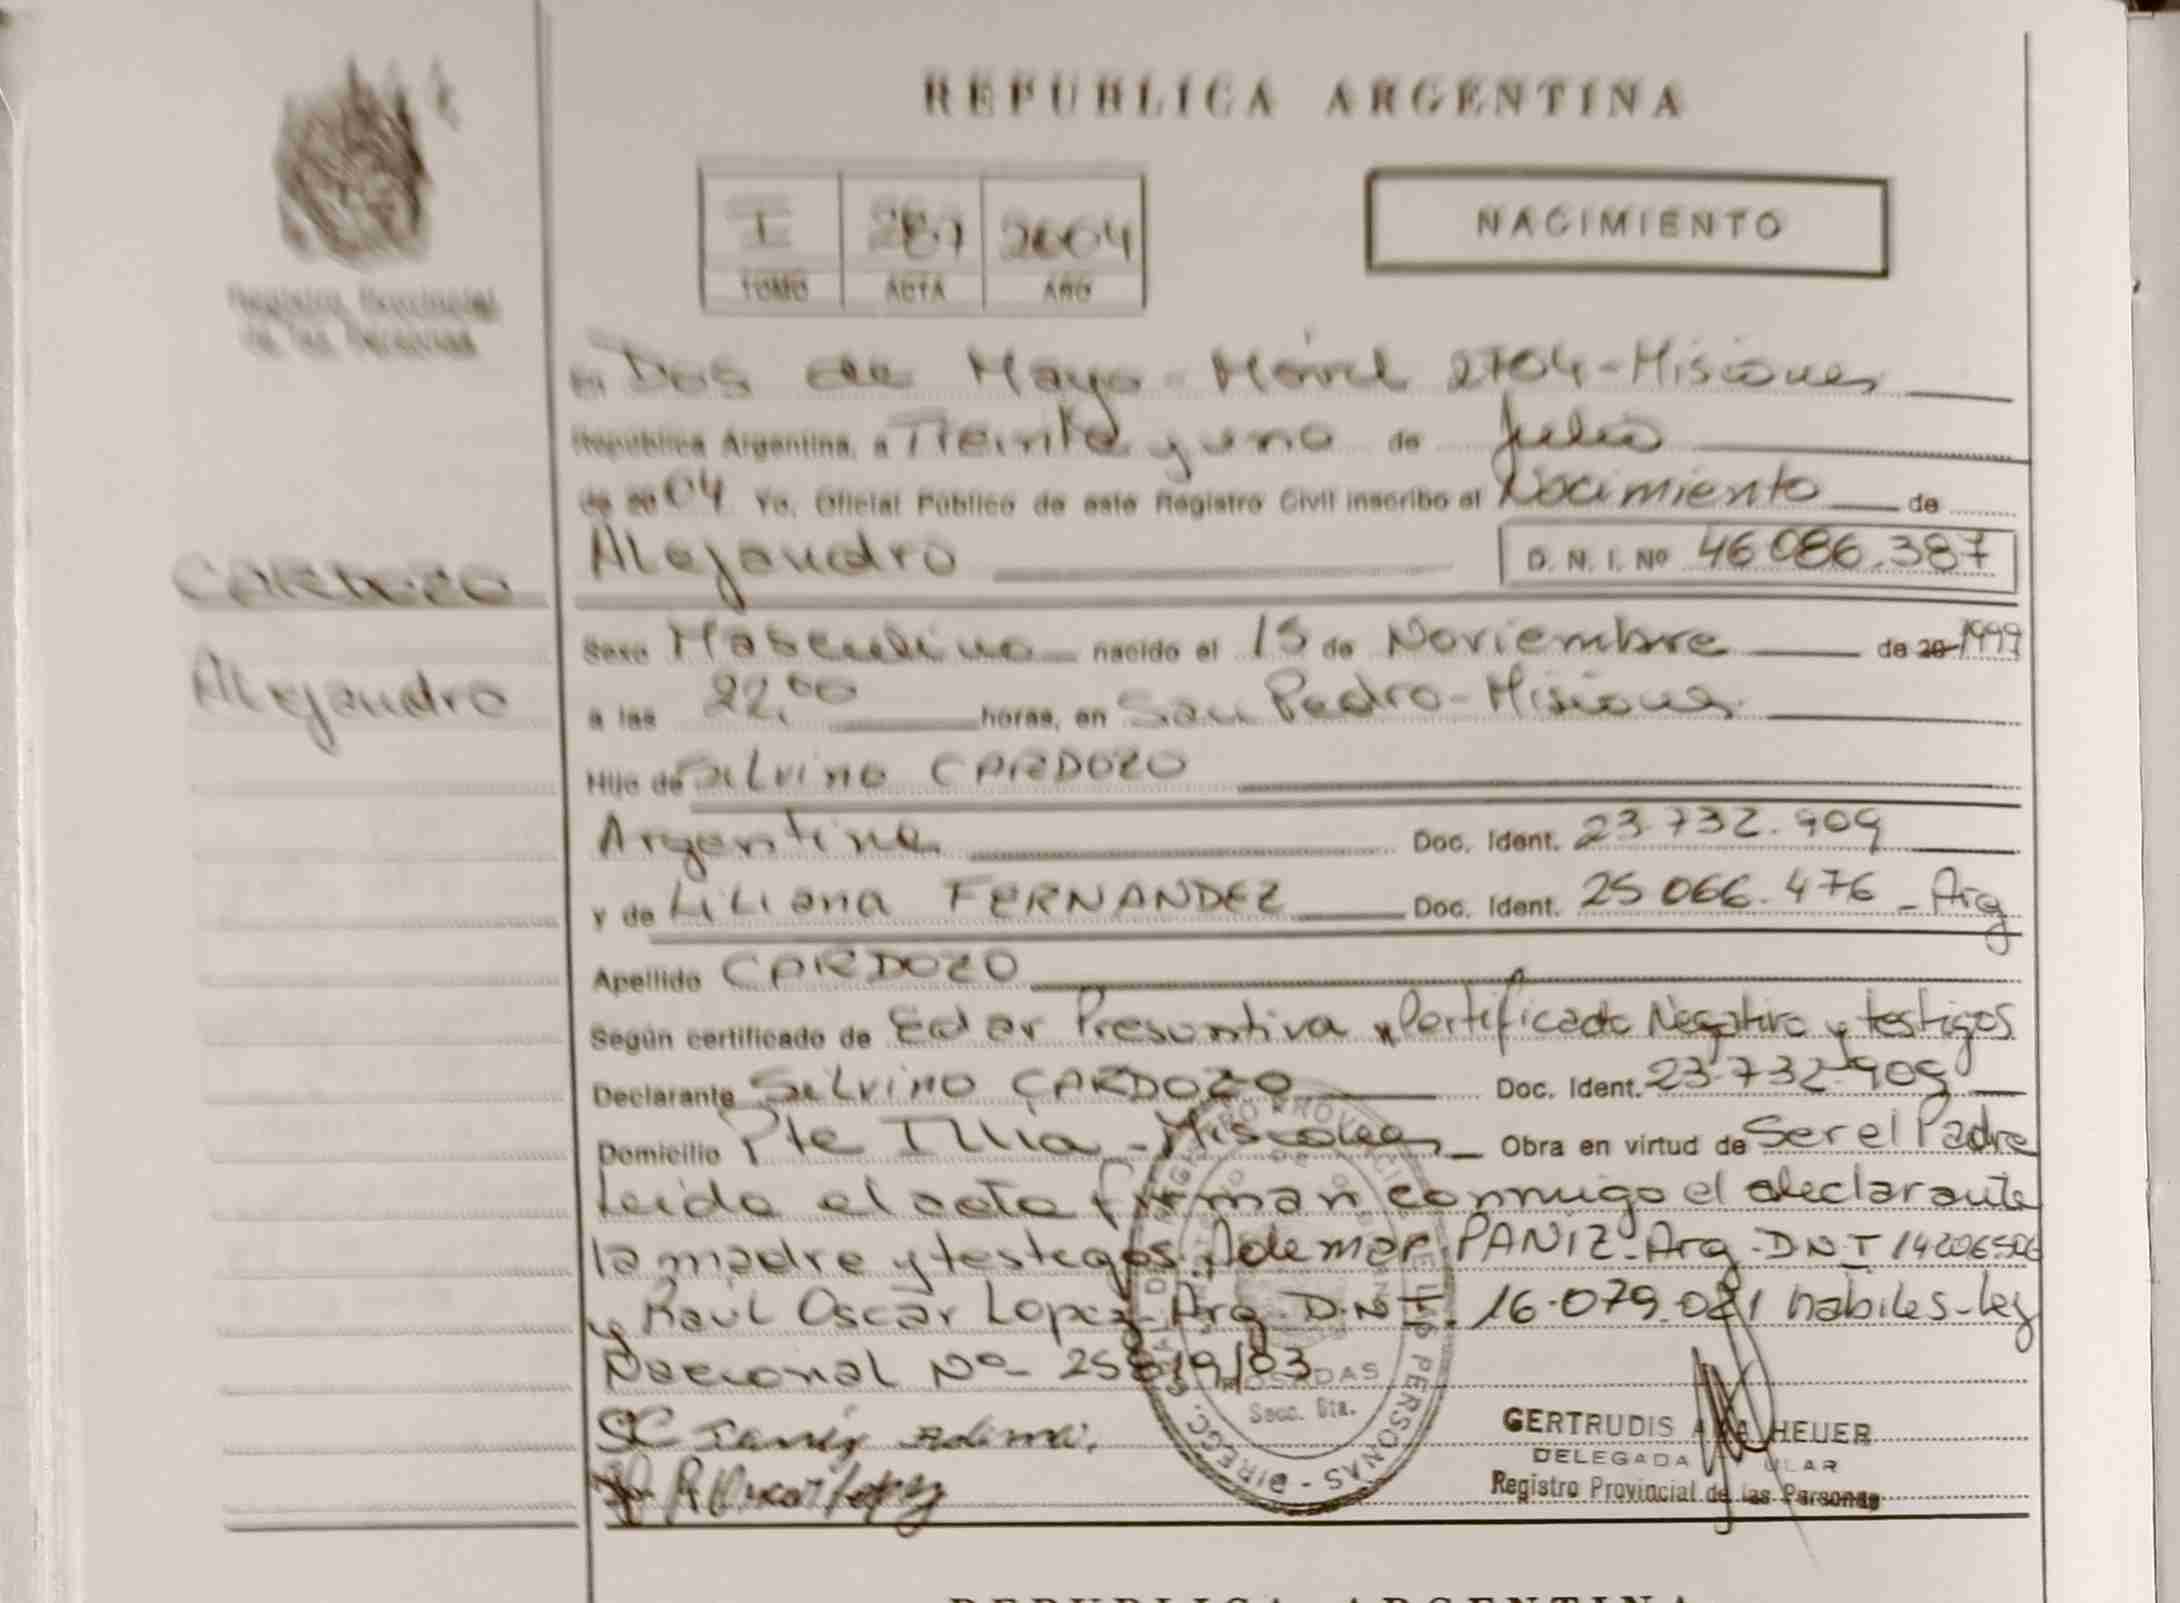 REPUBLICA ARGENTINA
Registro Provincial
de las Personas
I 287 2004
TOMO ACTA AÑO
NACIMIENTO
En Dos de Mayo - Móvil 2704 - Misiones
República Argentina, a Treinta y uno de Julio
de 2004 Yo, Oficial Público de este Registro Civil inscribo el Nacimiento de
CARDOZO
Alejandro D. N. I. Nº 46 086.387
Alejandro
Sexo Masculino nacido el 15 de Noviembre de 20 1999
a las 22,00 horas, en San Pedro - Misiones
Hijo de Silvino CARDOZO
Argentina Doc. Ident. 23.732.909
y de Liliana FERNANDEZ Doc. Ident. 25 066.476 - Arg
Apellido CARDOZO
Según certificado de Edad Presuntiva, Certificado Negativo y testigos
Declarante Silvino CARDOZO Doc. Ident. 23.732.909
Domicilio Pte Illia - Misiones Obra en virtud de Ser el Padre
Leida el acta firman conmigo el declarante
la madre y testigos. Ademar PANIZ - Arg. D.N.I 14206506
y Raúl Oscar Lopez - Arg. D.N.I. 16.079.021 habiles - ley
Nacional Nº 25819/03
POSADAS
Secc. Gta.
GERTRUDIS HEUER
DELEGADA
Registro Provincial de las Personas
REPUBLICA ARGENTINA